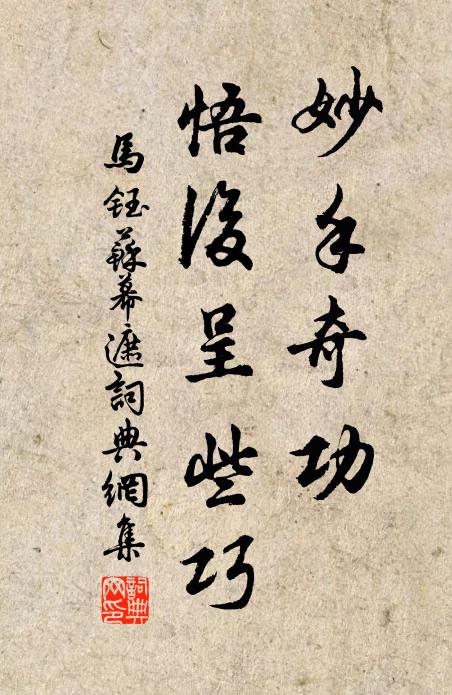 妙手奇功
悟後呈些巧
馬鈺蘇幕遮詞典網集
詞典網印